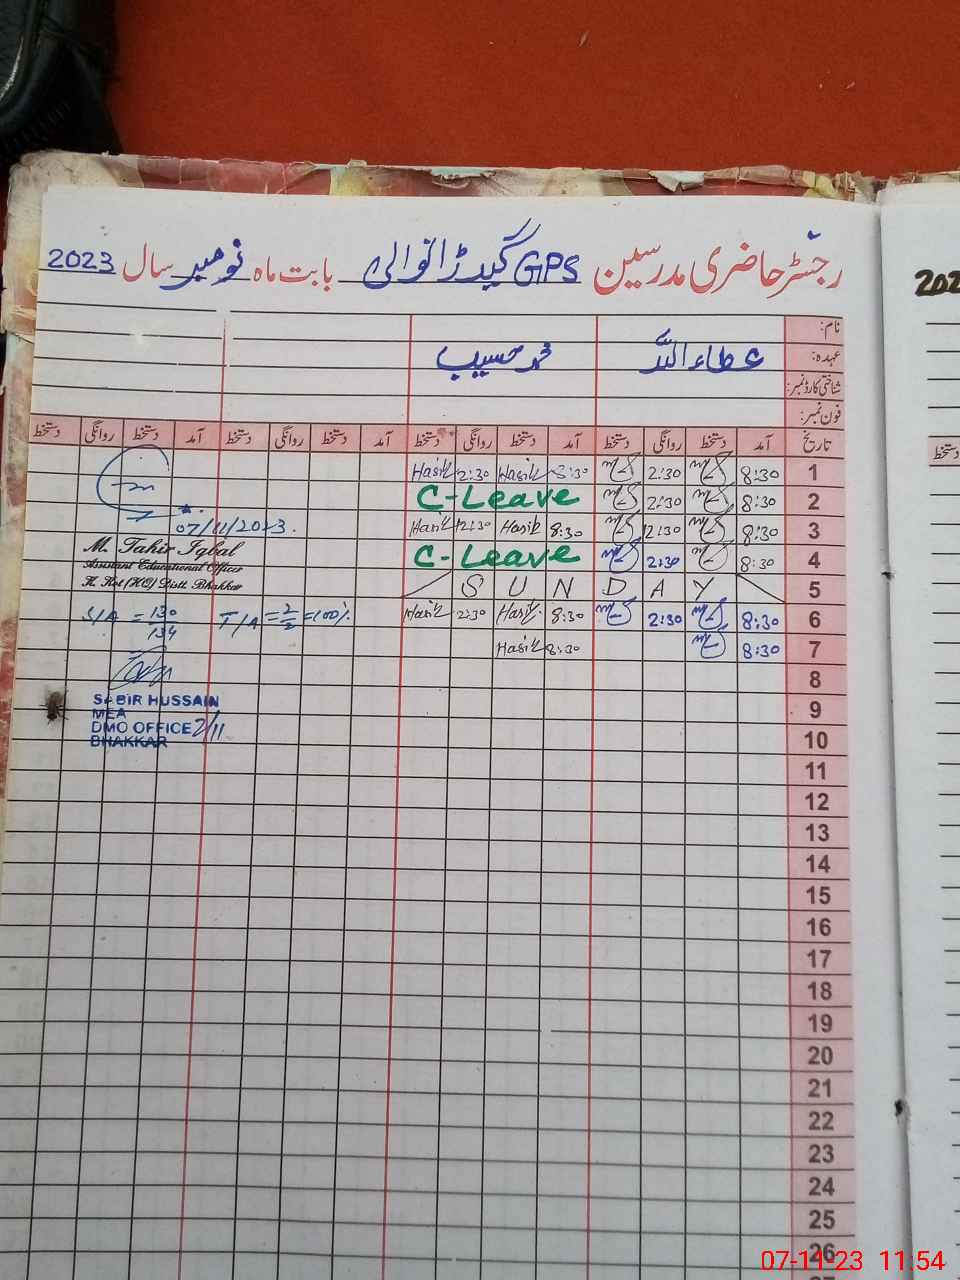 رجسٹر حاضری مدرسین GPS گیدڑانوالی بابت ماہ نومبر سال 2023
202
نام:
عہدہ: عطاء اللہ محمد حسیب
شناختی کارڈ نمبر:
فون نمبر:
تاریخ آمد دستخط روانگی دستخط آمد دستخط روانگی دستخط آمد دستخط روانگی دستخط آمد دستخط روانگی دستخط
دستخط
1 8:30 2:30 8:30 Hasib 2:30 Hasib
2 8:30 2:30 C-Leave
3 8:30 12:30 8:30 Hasib 12:30 Hasib
4 8:30 2:30 C-Leave
5 SUNDAY
6 8:30 2:30 8:30 Hasib 2:30 Hasib
7 8:30 8:30 Hasib
8
9
10
11
12
13
14
15
16
17
18
19
20
21
22
23
24
25
26
07/11/2023.
M. Tahir Iqbal
Assistant Educational Officer
K. Kot (HQ) Distt. Bhakkar
S/A = 130/134 T/A = 2/2 = 100%
SABIR HUSSAIN
MEA
DMO OFFICE 7/11
BHAKKAR
07-11-23 11:54